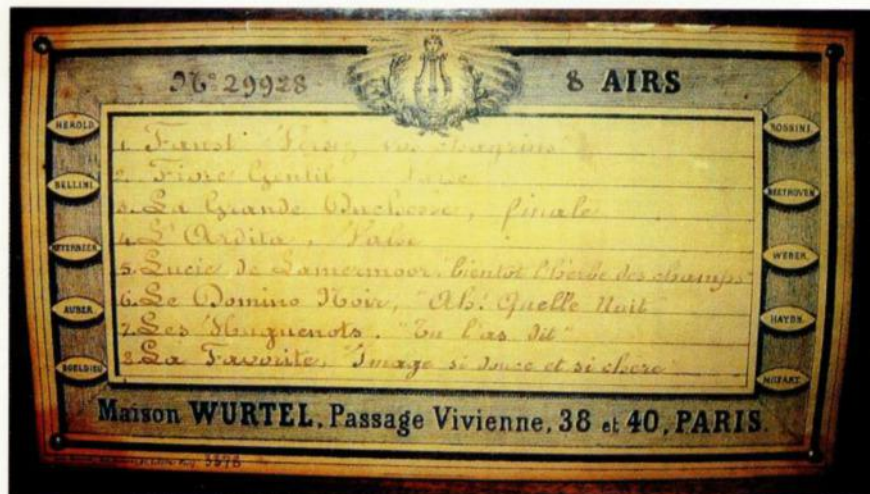 No 29928
8 AIRS
HEROLD.
BELLINI
MEYERBEER.
AUBER.
BOELDIEU
ROSSINI.
BEETHOVEN
WEBER.
HAYDN.
MOZART.
1. Faust "Versez vos chagrins"
2. Fiore Gentil
3. La Grande Duchesse, finale
4. L'Ardita, Valse
5. Lucie de Lamermoor. "bientot l'herbe des champs"
6. Le Domino Noir, "Ah! Quelle Nuit"
7. Les Huguenots. "Tu l'as dit"
8. La Favorite, "Image si douce et si chère"
Maison WURTEL, Passage Vivienne, 38 et 40, PARIS.
3378